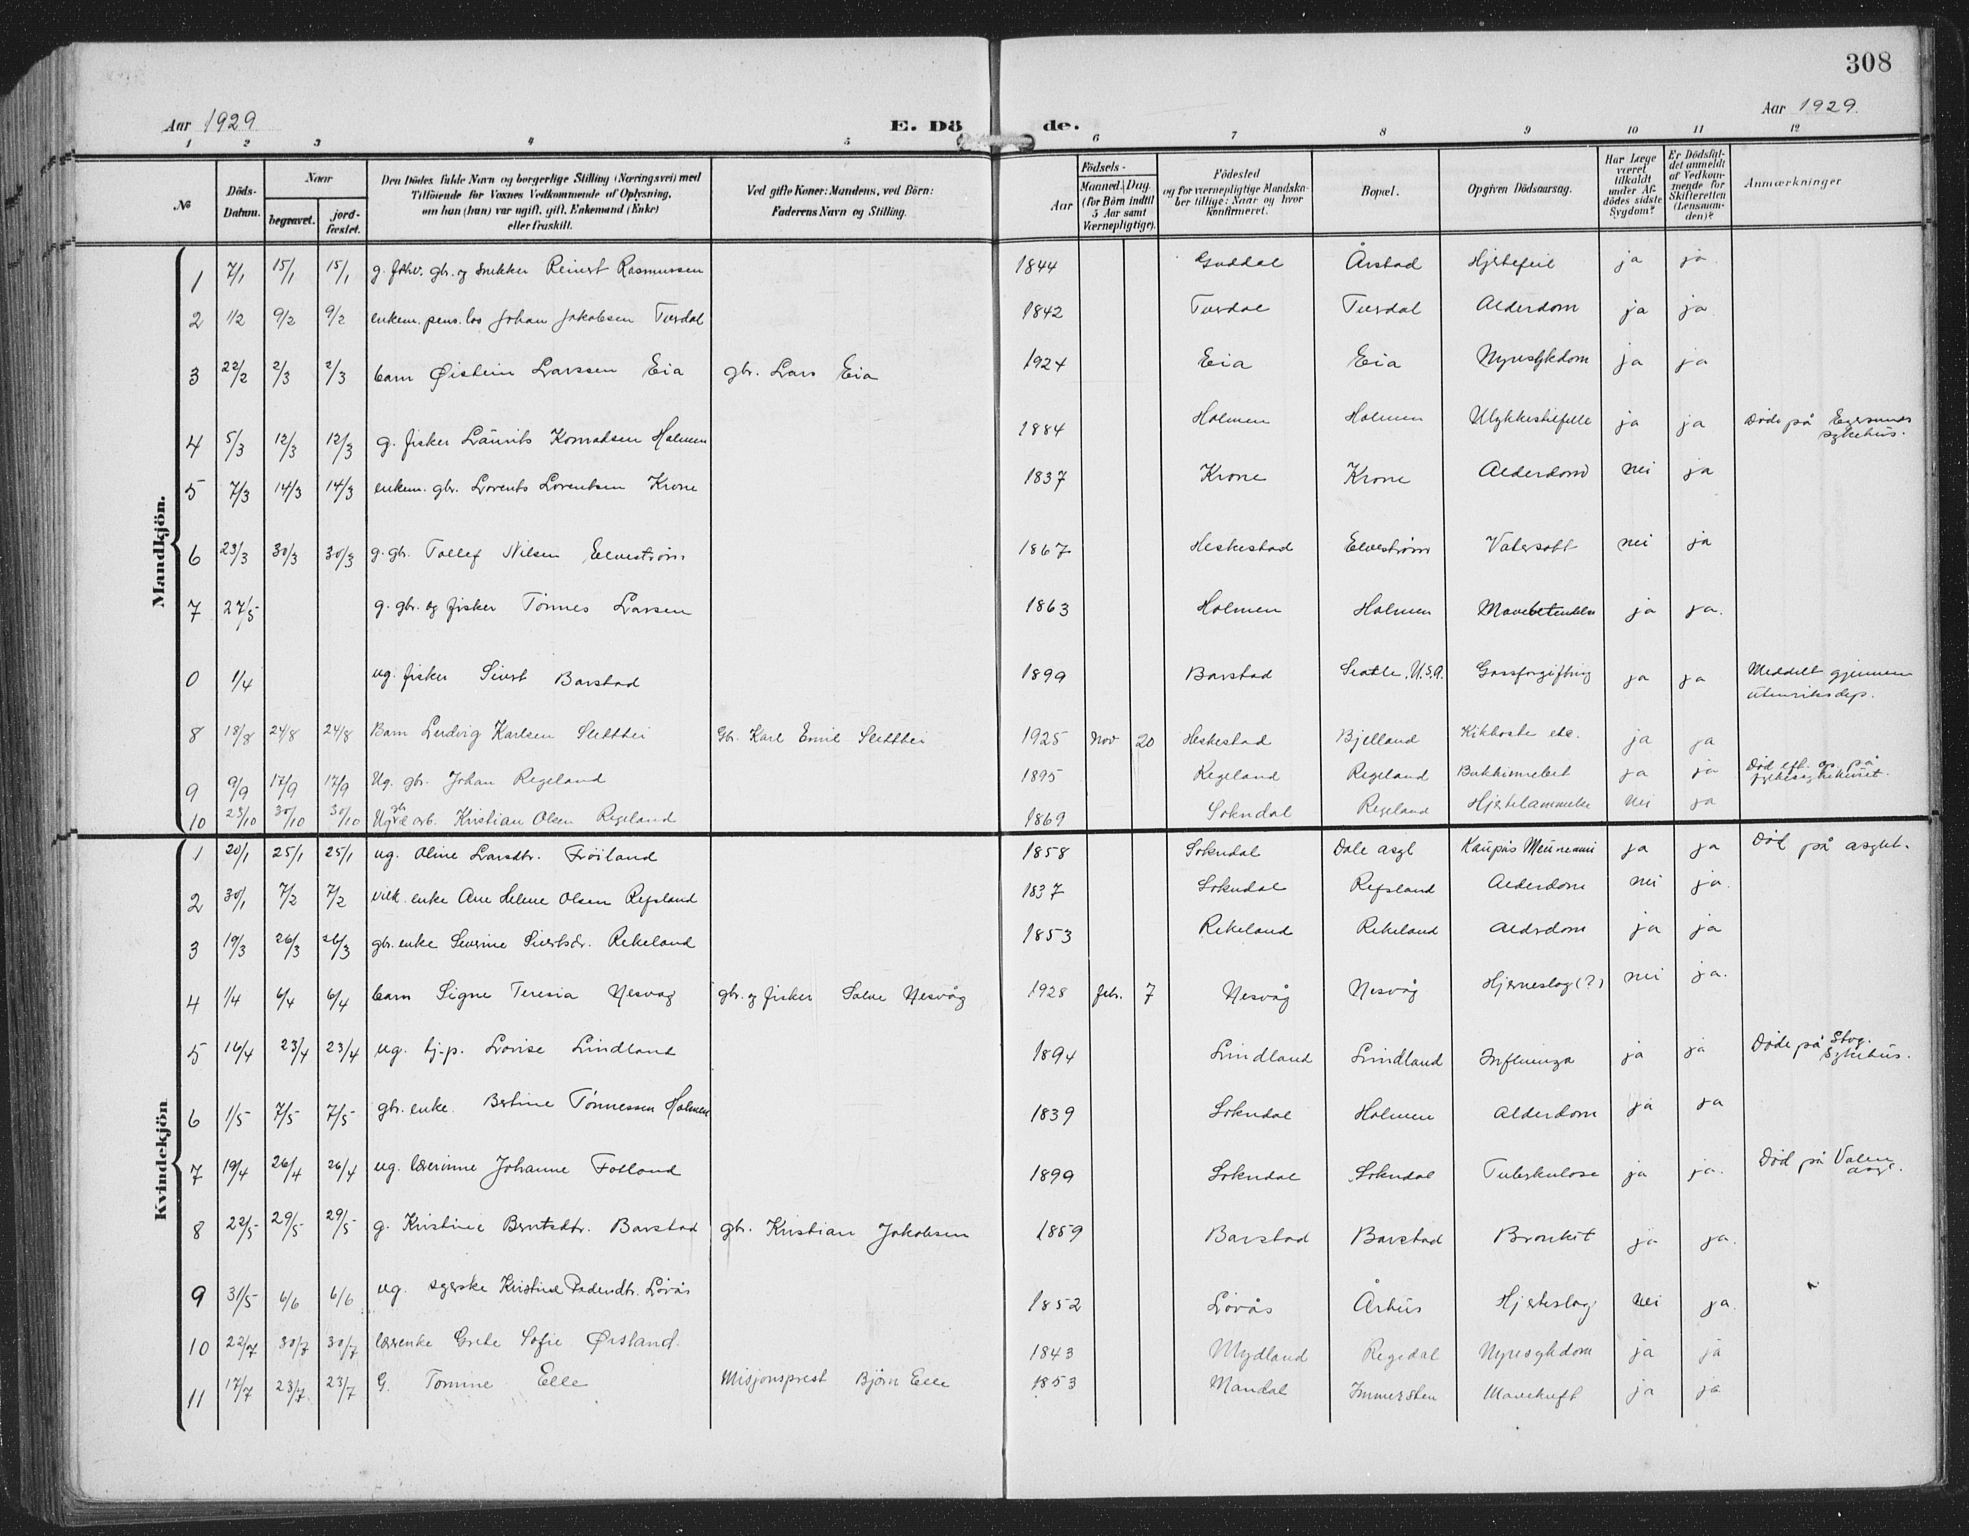 308
Aar 1929 E. Dö de. Aar 1929.
1 2 3 4 5 6 7 8 9 10 11 12
№ Döds-Datum. Naar begravet. jord-fæstet. Den Dödes fulde Navn og borgerlige Stilling (Næringsvei) med Tilföiende for Voxnes Vedkommende af Oplysning, om han (hun) var ugift, gift, Enkemand (Enke) eller fraskilt. Ved gifte Koner: Mandens, ved Börn: Faderens Navn og Stilling. Födsels- Aar Maaned. Dag. (for Börn indtil 5 Aar samt Værnepligtige). Födested og for værnepligtige Mandska-ber tillige: Naar og hvor konfirmeret. Bopæl. Opgiven Dödsaarsag. Har Læge været tilkaldt under Af-dödes sidste Sygdom? Er Dödsfal-det anmeldt af Vedkom-mende for Skifteretten (Lensman-den)? Anmærkninger
Mandkjön.
1 7/1 15/1 15/1 g. fhv. gbr. og snekker Reinert Rasmussen 1844 Guddal Årstad Hjertefeil ja ja
2 1/2 9/2 9/2 enkem. pens. los Johan Jakobsen Tuedal 1842 Tuedal Tuedal Alderdom ja ja
3 22/2 2/3 2/3 barn Øistein Larssen Eia gbr. Lars Eia 1924 Eia Eia Nyresykdom ja ja
4 5/3 12/3 12/3 g. fisker Laurits Konradsen Holmen 1884 Holmen Holmen Ulykkestilfelle ja ja Døde på Egersunds sykehus.
5 7/3 14/3 14/3 enkem. gbr. Lorents Lorentsen Krone 1837 Krone Krone Alderdom nei ja
6 23/3 30/3 30/3 g. gbr. Tollef Nilsen Elvestrøm 1867 Heskestad Elvestrøm Vatersott nei ja
7 27/5 g. gbr. og fisker Tønnes Larsen 1863 Holmen Holmen Mavebetendelse ja ja.
0 1/4 ug. fisker Sivert Barstad 1899 Barstad Seatle, U.S.A. Gassforgiftning ja ja Meddelt gjennem utenriksdep.
8 18/8 24/8 24/8 Barn Ludvig Karlsen Sletthei Gbr. Karl Emil Sletthei 1925 Nov 20 Heskestad Bjelland Kikhoste etc. ja ja
9 9/9 17/9 17/9 Ug. gbr. Johan Regeland 1895 Regeland Regeland Bukhinnebet ja ja Død eft. op. på
10 23/10 30/10 30/10 Kristian Olsen Regeland 1869 Sokndal Regeland Hjertelammelse nei ja
Kvindekjön
1 20/1 25/1 25/1 ug. Oline Larsdtr. Frøiland 1858 Sokndal Dale asyl ja ja Død på asylet.
2 30/1 7/2 7/2 enke Ane Helene Olsen Refsland 1837 Sokndal Refsland Alderdom nei ja.
3 19/3 26/3 26/3 gbr. enke Severine Sivertsdr. Rekeland 1853 Rekeland Rekeland Alderdom ja ja
4 1/4 6/4 6/4 barn Signe Teresia Nesvåg gbr. og fisker Salve Nesvåg 1928 febr. 7 Nesvåg Nesvåg Hjerneslag (?) nei ja.
5 16/4 23/4 23/4 ug. tj.p. Lovise Lindland 1894 Lindland Lindland Influenza ja ja Døde på Stvg. Sykehus.
6 1/5 7/5 7/5 gbr. enke. Bertine Tønnessen Holmen 1839 Sokndal Holmen Alderdom ja ja
7 19/4 26/4 26/4 ug. lærerinne Johanne Fotland 1899 Sokndal Sokndal Tuberkulose ja ja. Død på Valen asyl.
8 22/5 29/5 29/5 g. Kristine Berntsdtr. Barstad gbr. Kristian Jakobsen 1859 Barstad Barstad Bronkit ja ja.
9 31/5 6/6 6/6 ug. syerske Kristine Pedersdtr. Løvås 1852 Løvås Århus Hjerteslag nei ja.
10 22/7 30/7 30/7 Grete Sofie Ørsland. 1843 Mydland Regedal Nyresykdom ja ja
11 17/7 23/7 23/7 G. Tomine Elle Misjonsprest Bjørn Elle 1853 Mandal Immersten Mavekreft ja ja